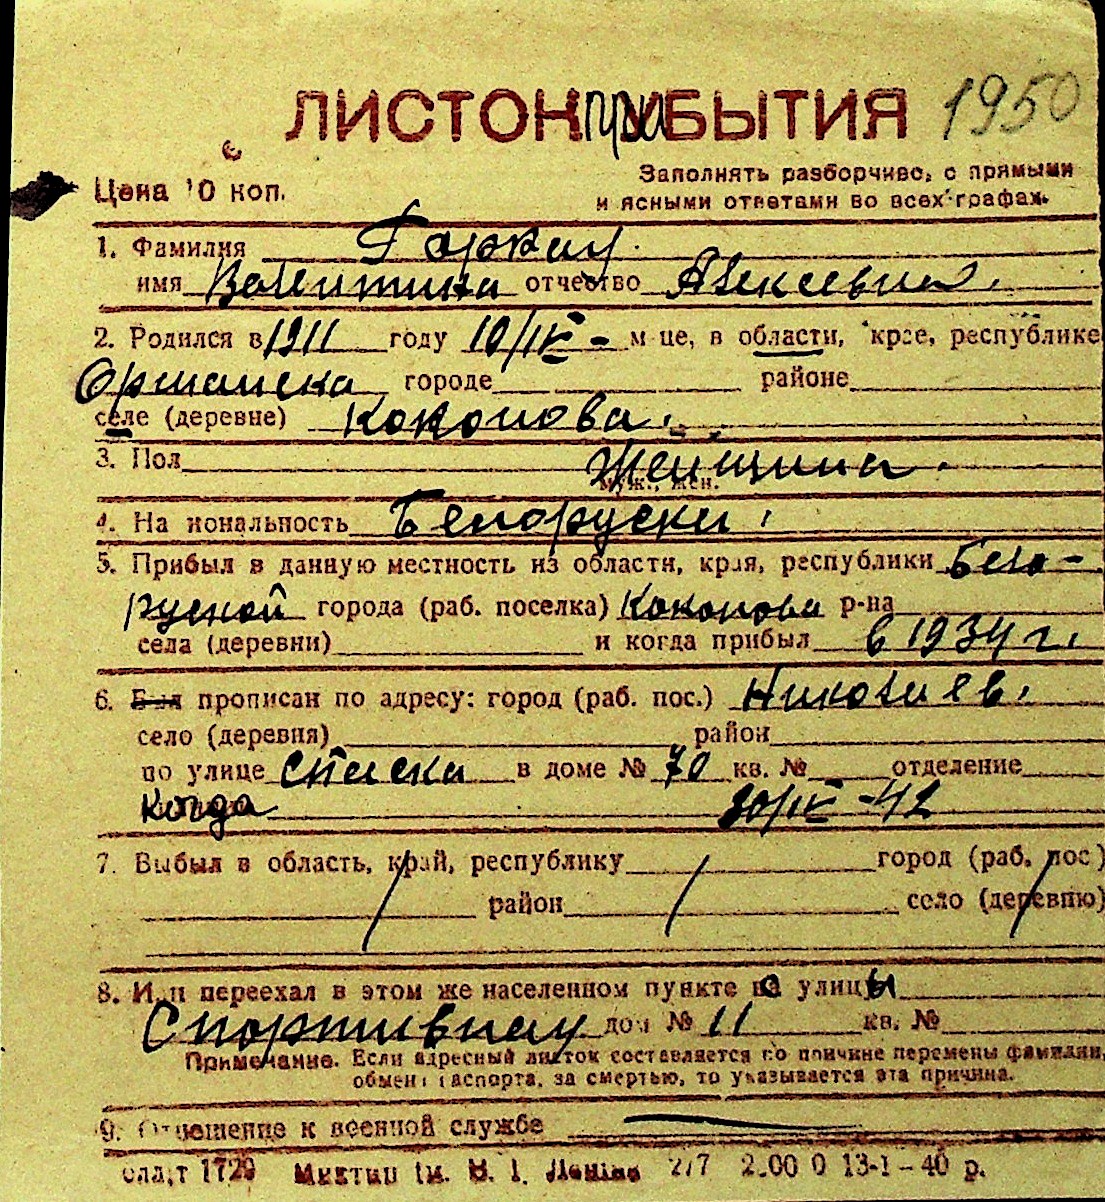 ЛИСТОК прибЫТИЯ 1950
Цена 10 коп.
Заполнять разборчиво, с прямыми
и ясными ответами во всех графах.
1. Фамилия
имя Валентина отчество Алексевна.
2. Родился в 1911 году 10/IX - м-це, в области, крае, республике
Оршанска городе районе
селе (деревне) Коконова.
3. Пол Женщина.
муж., жен.
4. Национальность Белоруски
5. Прибыл в данную местность из области, края, республики Бело-
руской города (раб. поселка) Коконова р-на
села (деревни) и когда прибыл в 1934 г.
6. Был прописан по адресу: город (раб. пос.) Николаев.
село (деревня) район
по улице Спаска в доме № 70 кв. № отделение
Когда 30/IX -42
7. Выбыл в область, край, республику город (раб. пос.)
район село (деревню)
8. Или переехал в этом же населенном пункте с улицы
Спортивнау дом № 11 кв. №
Примечание. Если адресный листок составляется по причине перемены фамилии,
обмена паспорта, за смертью, то указывается эта причина.
9. Отношение к военной службе
1729 ім. В. І. Леніна 2/7 2.00 0 13-1-40 р.